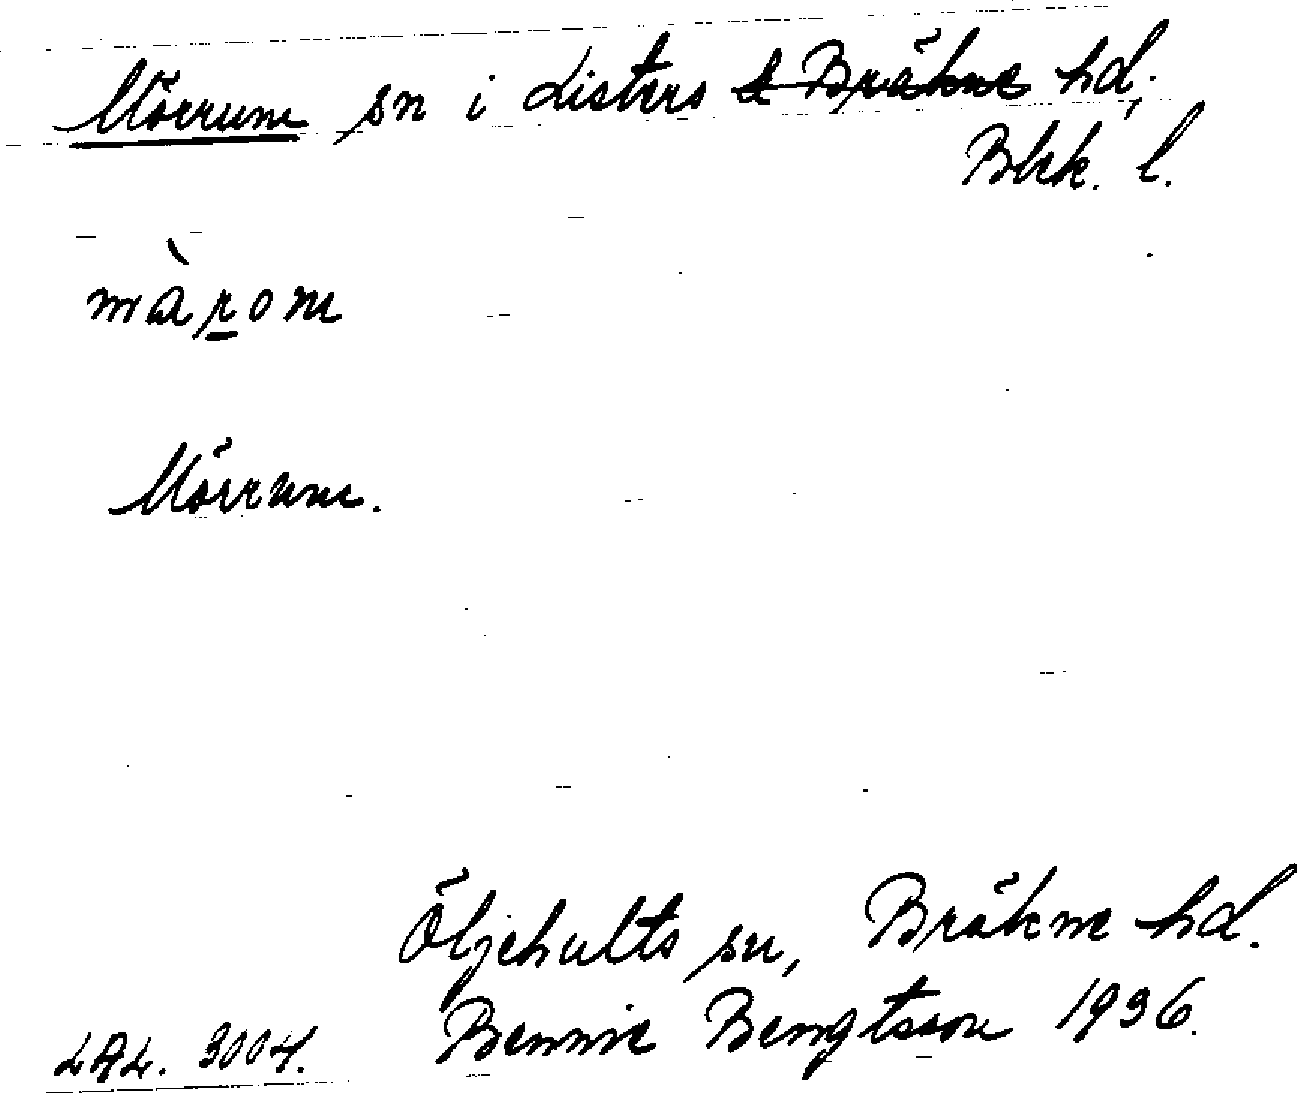 Mörrum sn i Listers & Bräkne hd,
Blek. l.
màrom
Mörrum.
Öljehults sn, Bräkne hd.
Bennie Bengtsson 1936.
LAL. 3004.